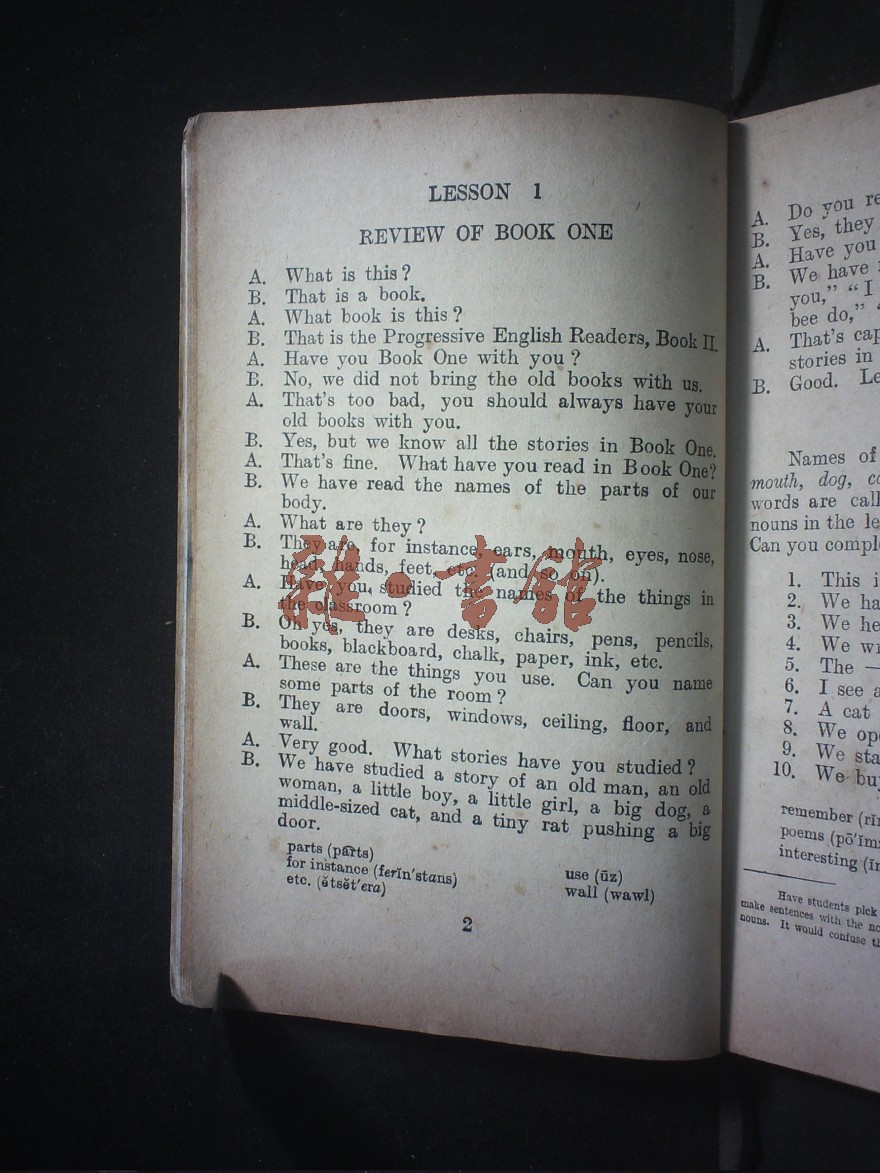 LESSON 1
REVIEW OF BOOK ONE
A. What is this?
B. That is a book.
A. What book is this?
B. That is the Progressive English Readers, Book II.
A. Have you Book One with you?
B. No, we did not bring the old books with us.
A. That's too bad, you should always have your
old books with you.
B. Yes, but we know all the stories in Book One.
A. That's fine. What have you read in Book One?
B. We have read the names of the parts of our
body.
A. What are they?
B. They are, for instance, ears, mouth, eyes, nose,
head, hands, feet, etc. (and so on).
A. Have you studied the names of the things in
the classroom?
B. Oh yes, they are desks, chairs, pens, pencils,
books, blackboard, chalk, paper, ink, etc.
A. These are the things you use. Can you name
some parts of the room?
B. They are doors, windows, ceiling, floor, and
wall.
A. Very good. What stories have you studied?
B. We have studied a story of an old man, an old
woman, a little boy, a little girl, a big dog, a
middle-sized cat, and a tiny rat pushing a big
door.
parts (pärts)
for instance (ferĭn'stans)
etc. (ĕtsĕt'era)
use (ūz)
wall (wawl)
2
雜·書館
A. Do you re
B. Yes, they
A. Have you
B. We have
you," "I
bee do,"
A. That's cap
stories in
B. Good. Le
Names of
mouth, dog, co
words are call
nouns in the le
Can you comple
1. This i
2. We ha
3. We he
4. We wr
5. The —
6. I see a
7. A cat
8. We ope
9. We sta
10. We buy
remember (rĭ
poems (pō'ĭms
interesting (ĭn
Have students pick
make sentences with the no
nouns. It would confuse th